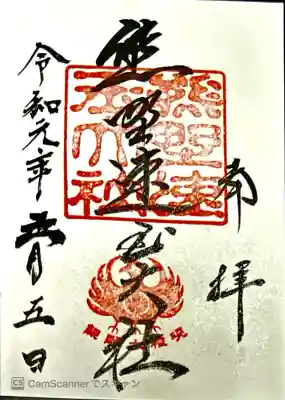 奉拝
熊野速玉大社
令和元年五月五日
CS CamScannerでスキャン